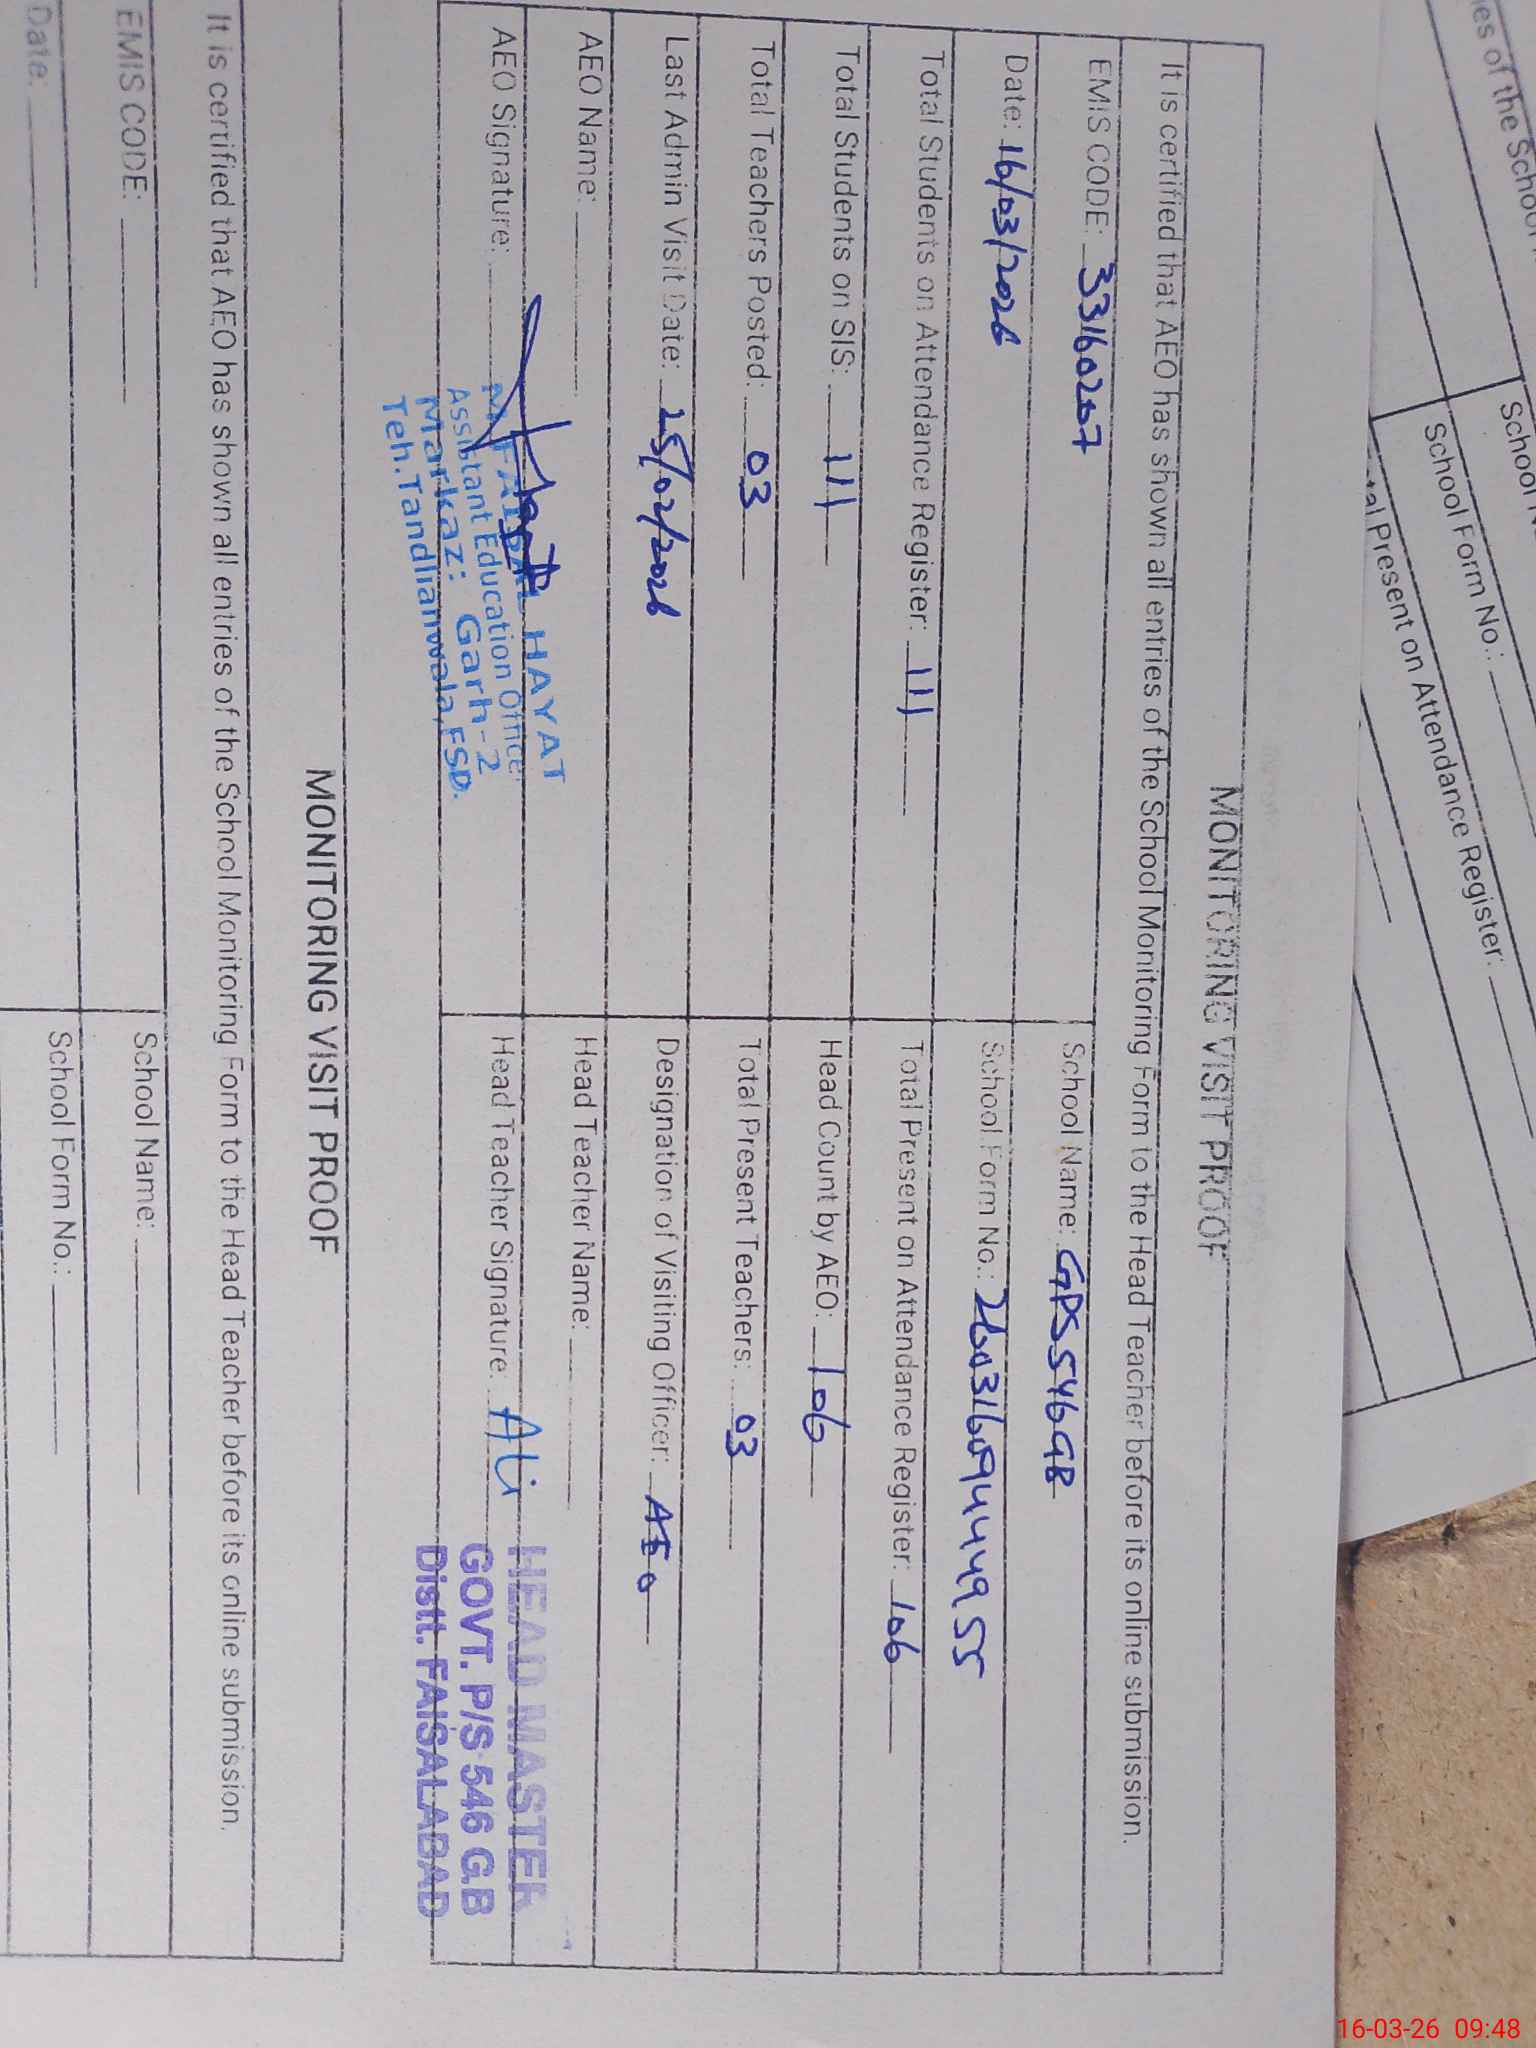 MONITORING VISIT PROOF
It is certified that AEO has shown all entries of the School Monitoring Form to the Head Teacher before its online submission.
EMIS CODE: 33160207 School Name: GPS 546 GB
Date: 16/03/2026 School Form No.: 26031609444955
Total Students on Attendance Register: 111 Total Present on Attendance Register: 106
Total Students on SIS: 111 Head Count by AEO: 106
Total Teachers Posted: 03 Total Present Teachers: 03
Last Admin Visit Date: 25/02/2026 Designation of Visiting Officer: AEO
AEO Name: Head Teacher Name:
AEO Signature: Head Teacher Signature: Ali
M. FAISAL HAYAT
Assistant Education Officer
Markaz: Garh-2
Teh.Tandlianwala,FSD.
HEAD MASTER
GOVT. P/S 546 GB
Distt. FAISALABAD
MONITORING VISIT PROOF
It is certified that AEO has shown all entries of the School Monitoring Form to the Head Teacher before its online submission.
EMIS CODE: School Name:
Date: School Form No.:
of the School
School
School Form No.:
Present on Attendance Register:
16-03-26 09:48